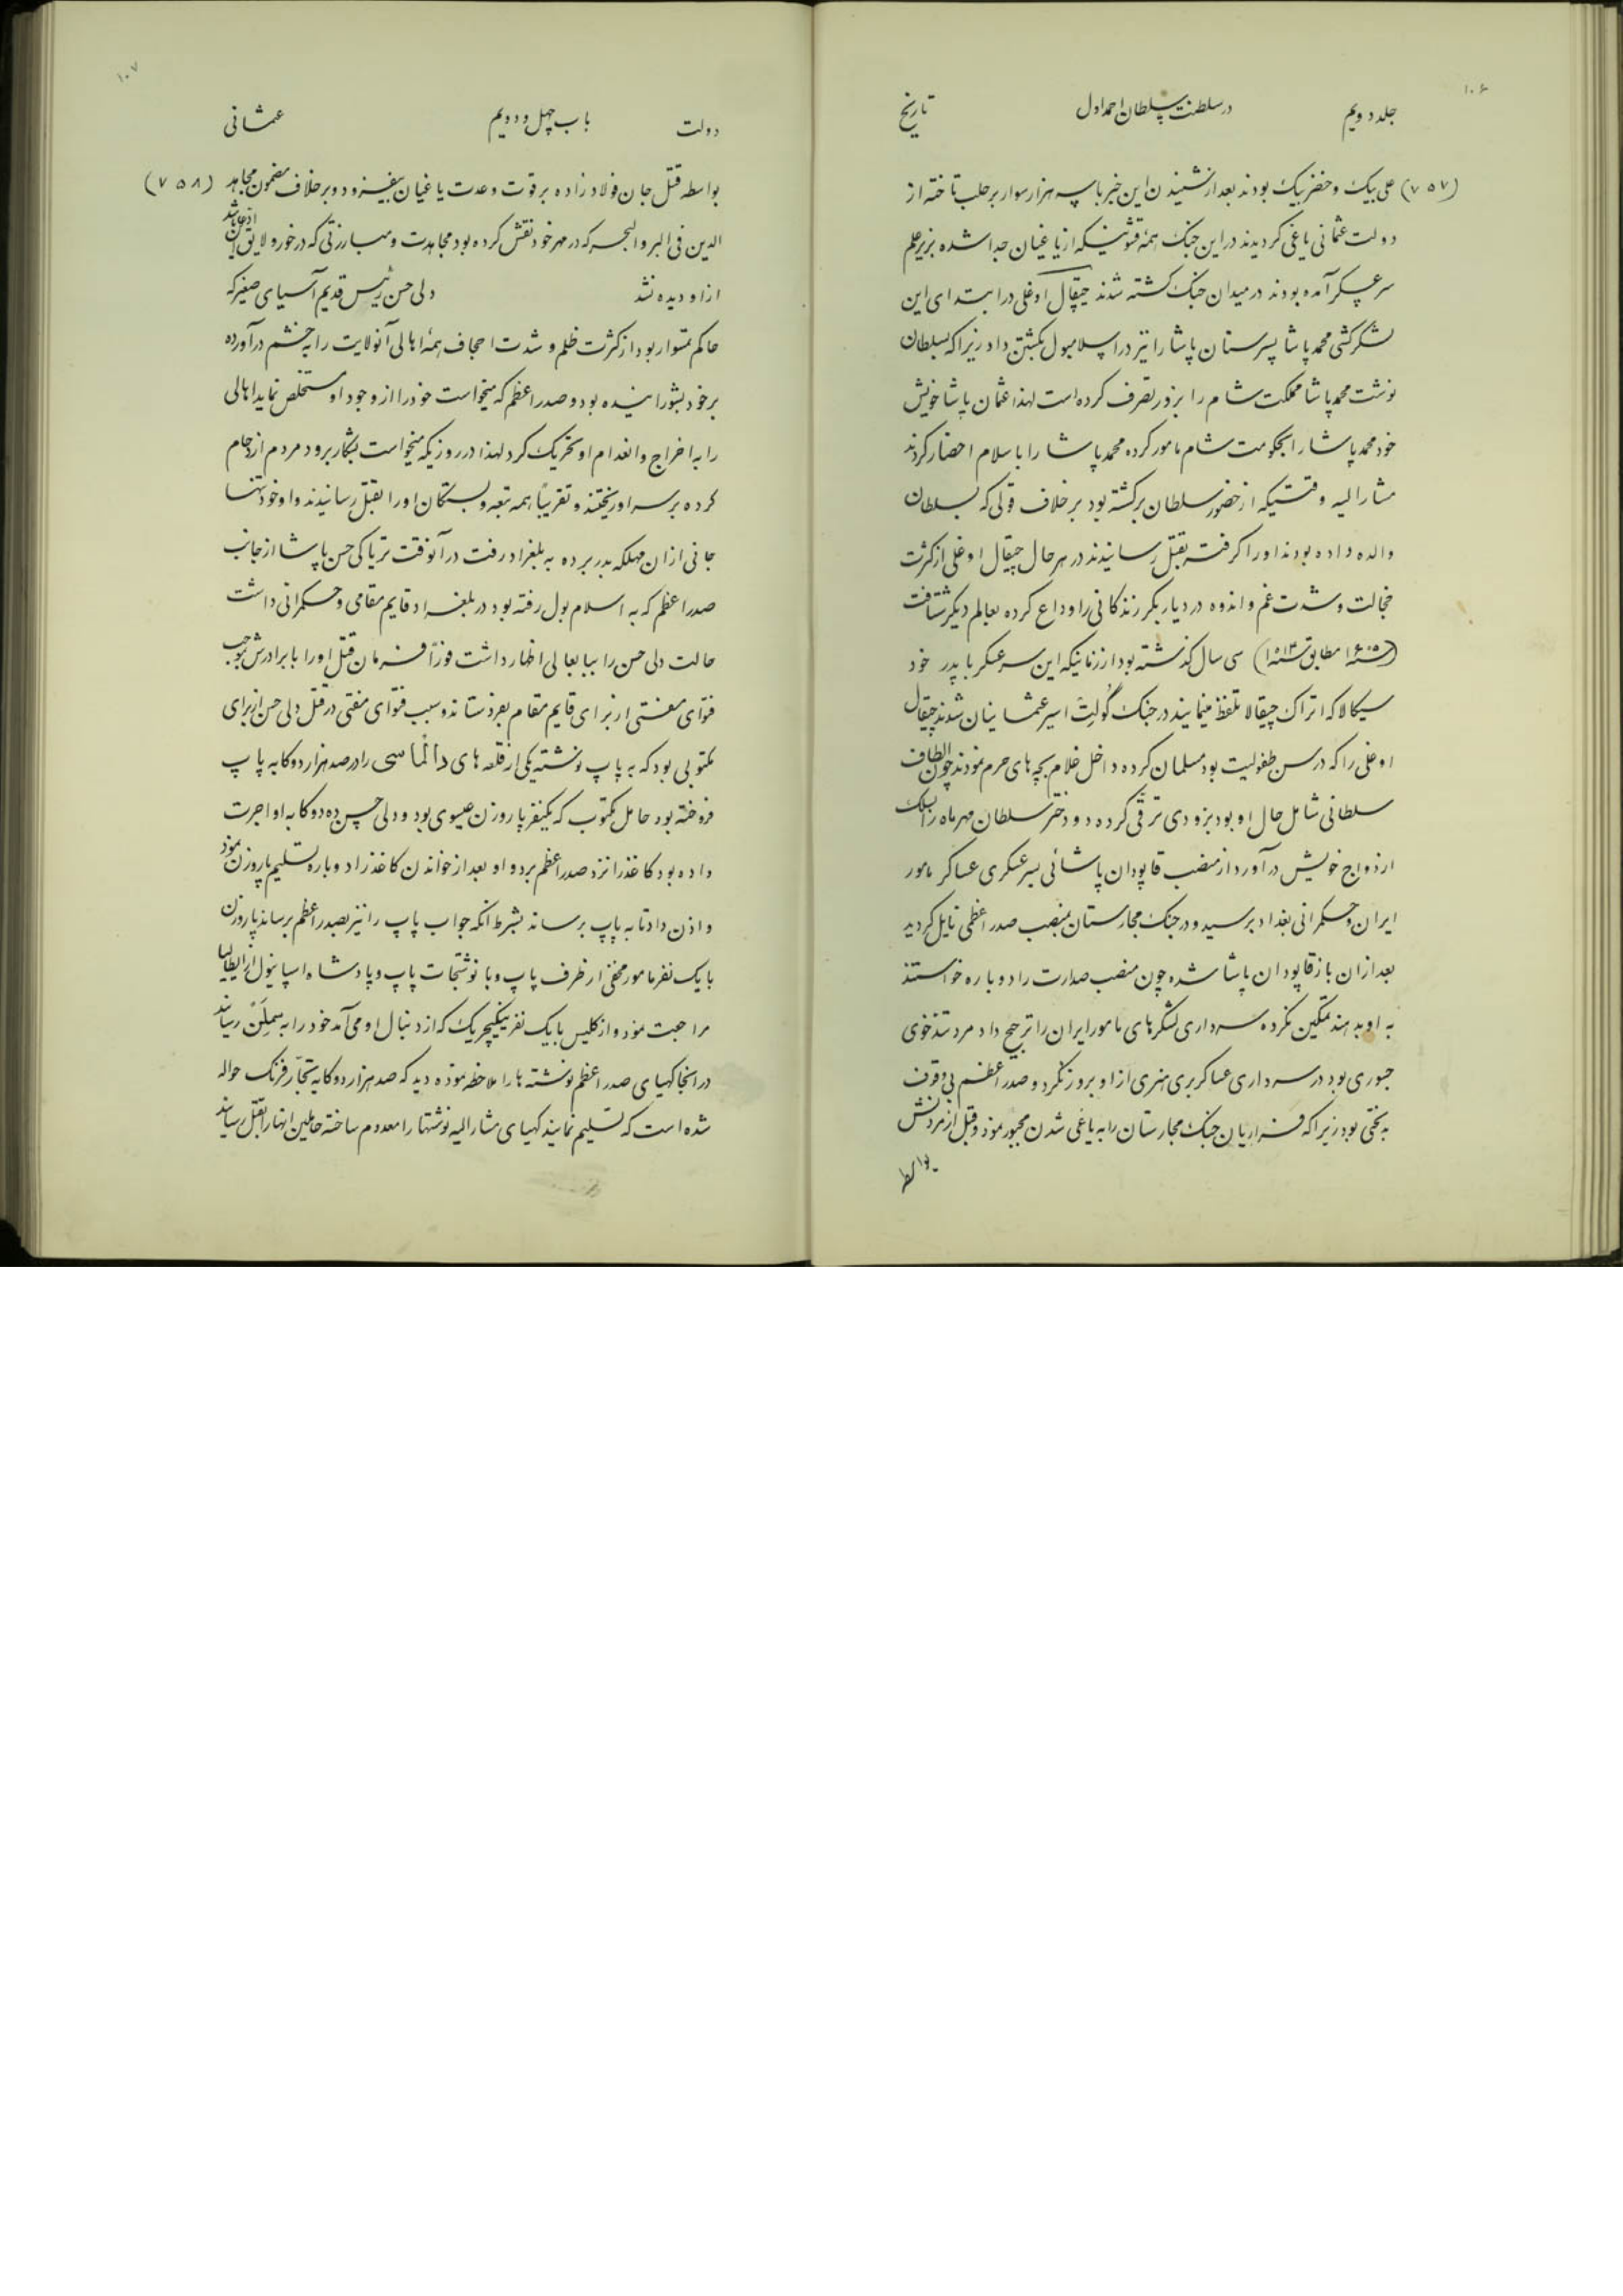 ۱۰۶
جلد دویم در سلطنت سلطان احمد اول تاریخ
(۷۵۷) علی بیک و خضر بیک بودند بعد از شنیدن این خبر با سه هزار سوار بر حلب تاخته از
دولت عثمانی یاغی کردیدند در این جنک همهٔ قشونیکه از یاغیان جدا شده بزیر علم
سرعسکر آمده بودند در میدان جنک کشته شدند چیقال اوغلی در ابتدای این
لشکرکشی محمد پاشا پسر سنان پاشا را نیز در اسلامبول بکشتن داد زیرا که بسلطان
نوشت محمد پاشا مملکت شام را بزور تصرف کرده است لهذا عثمان پاشا خویش
خود محمد پاشا را بحکومت شام مامور کرده محمد پاشا را باسلام احضار کردند
مشارالیه وقتیکه از حضور سلطان برکشته بود بر خلاف قولی که بسلطان
والده داده بودند او را کرفته بقتل رسانیدند در هر حال چیقال اوغلی از کثرت
خجالت و شدت غم و اندوه در دیار بکر زندکانی را وداع کرده بعالم دیکر شتافت
(۱۶۰۵ مطابق ۱۰۱۳) سی سال کذشته بود از زمانیکه این سرعسکر با پدر خود
سیکالا که اتراک چیقالا تلفظ مینمایند در جنک کولت اسیر عثمانیان شدند چیقال
اوغلی را که در سن طفولیت بود مسلمان کرده داخل غلام بچه های حرم نمودند چون الطاف
سلطانی شامل حال او بود بزودی ترقی کرده دو دختر سلطان مهرماه را بسلک
ازدواج خویش در آورد از منصب قاپودان پاشائی بسرعسکری عساکر مامور
ایران و حکمرانی بغداد برسید و در جنک مجارستان بمنصب صدر اعظمی نایل کردید
بعد از ان باز قاپودان پاشا شده چون منصب صدارت را دوباره خواستند
به او بدهند تمکین نکرده سرداری لشکرهای مامور ایران را ترجیح داد مرد تندخوی
جسوری بود در سرداری عساکر بری هنری از او بروز نکرد و صدر اعظم بی وقوف
بدبختی بود زیرا که فراریان جنک مجارستان را به یاغی شدن مجبور نمود و قبل از مردنش
بواسطه
۱۰۷
دولت باب چهل و دویم عثمانی
بواسطه قتل جان فولاد زاده بر قوت و عدت یاغیان بیفزود و بر خلاف مضمون مجاهد (۷۵۸)
الدین فی البر والبحر که در مهر خود نقش کرده بود مجاهدت و مبارزتی که در خور و لایق این ادعا باشد
از او دیده نشد دلی حسن رئیس قدیم آسیای صغیر که
حاکم تمسوار بود از کثرت ظلم و شدت اجحاف همهٔ اهالی آنولایت را به خشم درآورده
بر خود بشورانیده بود و صدر اعظم که میخواست خود را از وجود او مستخلص نماید اهالی
را به اخراج و انعدام او تحریک کرد لهذا در روزیکه میخواست بشکار برود مردم ازدحام
کرده بر سر او ریختند و تقریباً همه تبعه و بستکان او را بقتل رسانیدند و او خود تنها
جانی از ان مهلکه بدر برده به بلغراد رفت در آنوقت تریاکی حسن پاشا از جانب
صدر اعظم که به اسلام بول رفته بود در بلغراد قایم مقامی و حکمرانی داشت
حالت دلی حسن را بباب عالی اظهار داشت فوراً فرمان قتل او را با برادرش بموجب
فتوای مفتی از برای قایم مقام بفرستادند و سبب فتوای مفتی در قتل دلی حسن از برای
مکتوبی بود که به پاپ نوشته یکی از قلعه های دالماسی را در صد هزار دوکا به پاپ
فروخته بود حامل مکتوب که یکنفر پاروزن عیسوی بود و دلی حسن ده دوکا به او اجرت
داده بود کاغذ را نزد صدر اعظم برد و او بعد از خواندن کاغذ را دوباره تسلیم پاروزن نمود
و اذن داد تا به پاپ برساند بشرط آنکه جواب پاپ را نیز بصدر اعظم برساند پاروزن
با یک نفر مامور مخفی از طرف پاپ و با نوشتجات پاپ و پادشاه اسپانیول از ایطالیا
مراجعت نمود و از کلیس با یک نفر ینکیچریک که از دنبال او می آمد خود را به سملن رسانید
در انجا کهیای صدر اعظم نوشته ها را ملاحظه نموده دید که صد هزار دوکا به تجار فرنک حواله
شده است که تسلیم نمایند کهیای مشارالیه نوشتها را معدوم ساخته حاملین انها را بقتل رسانید